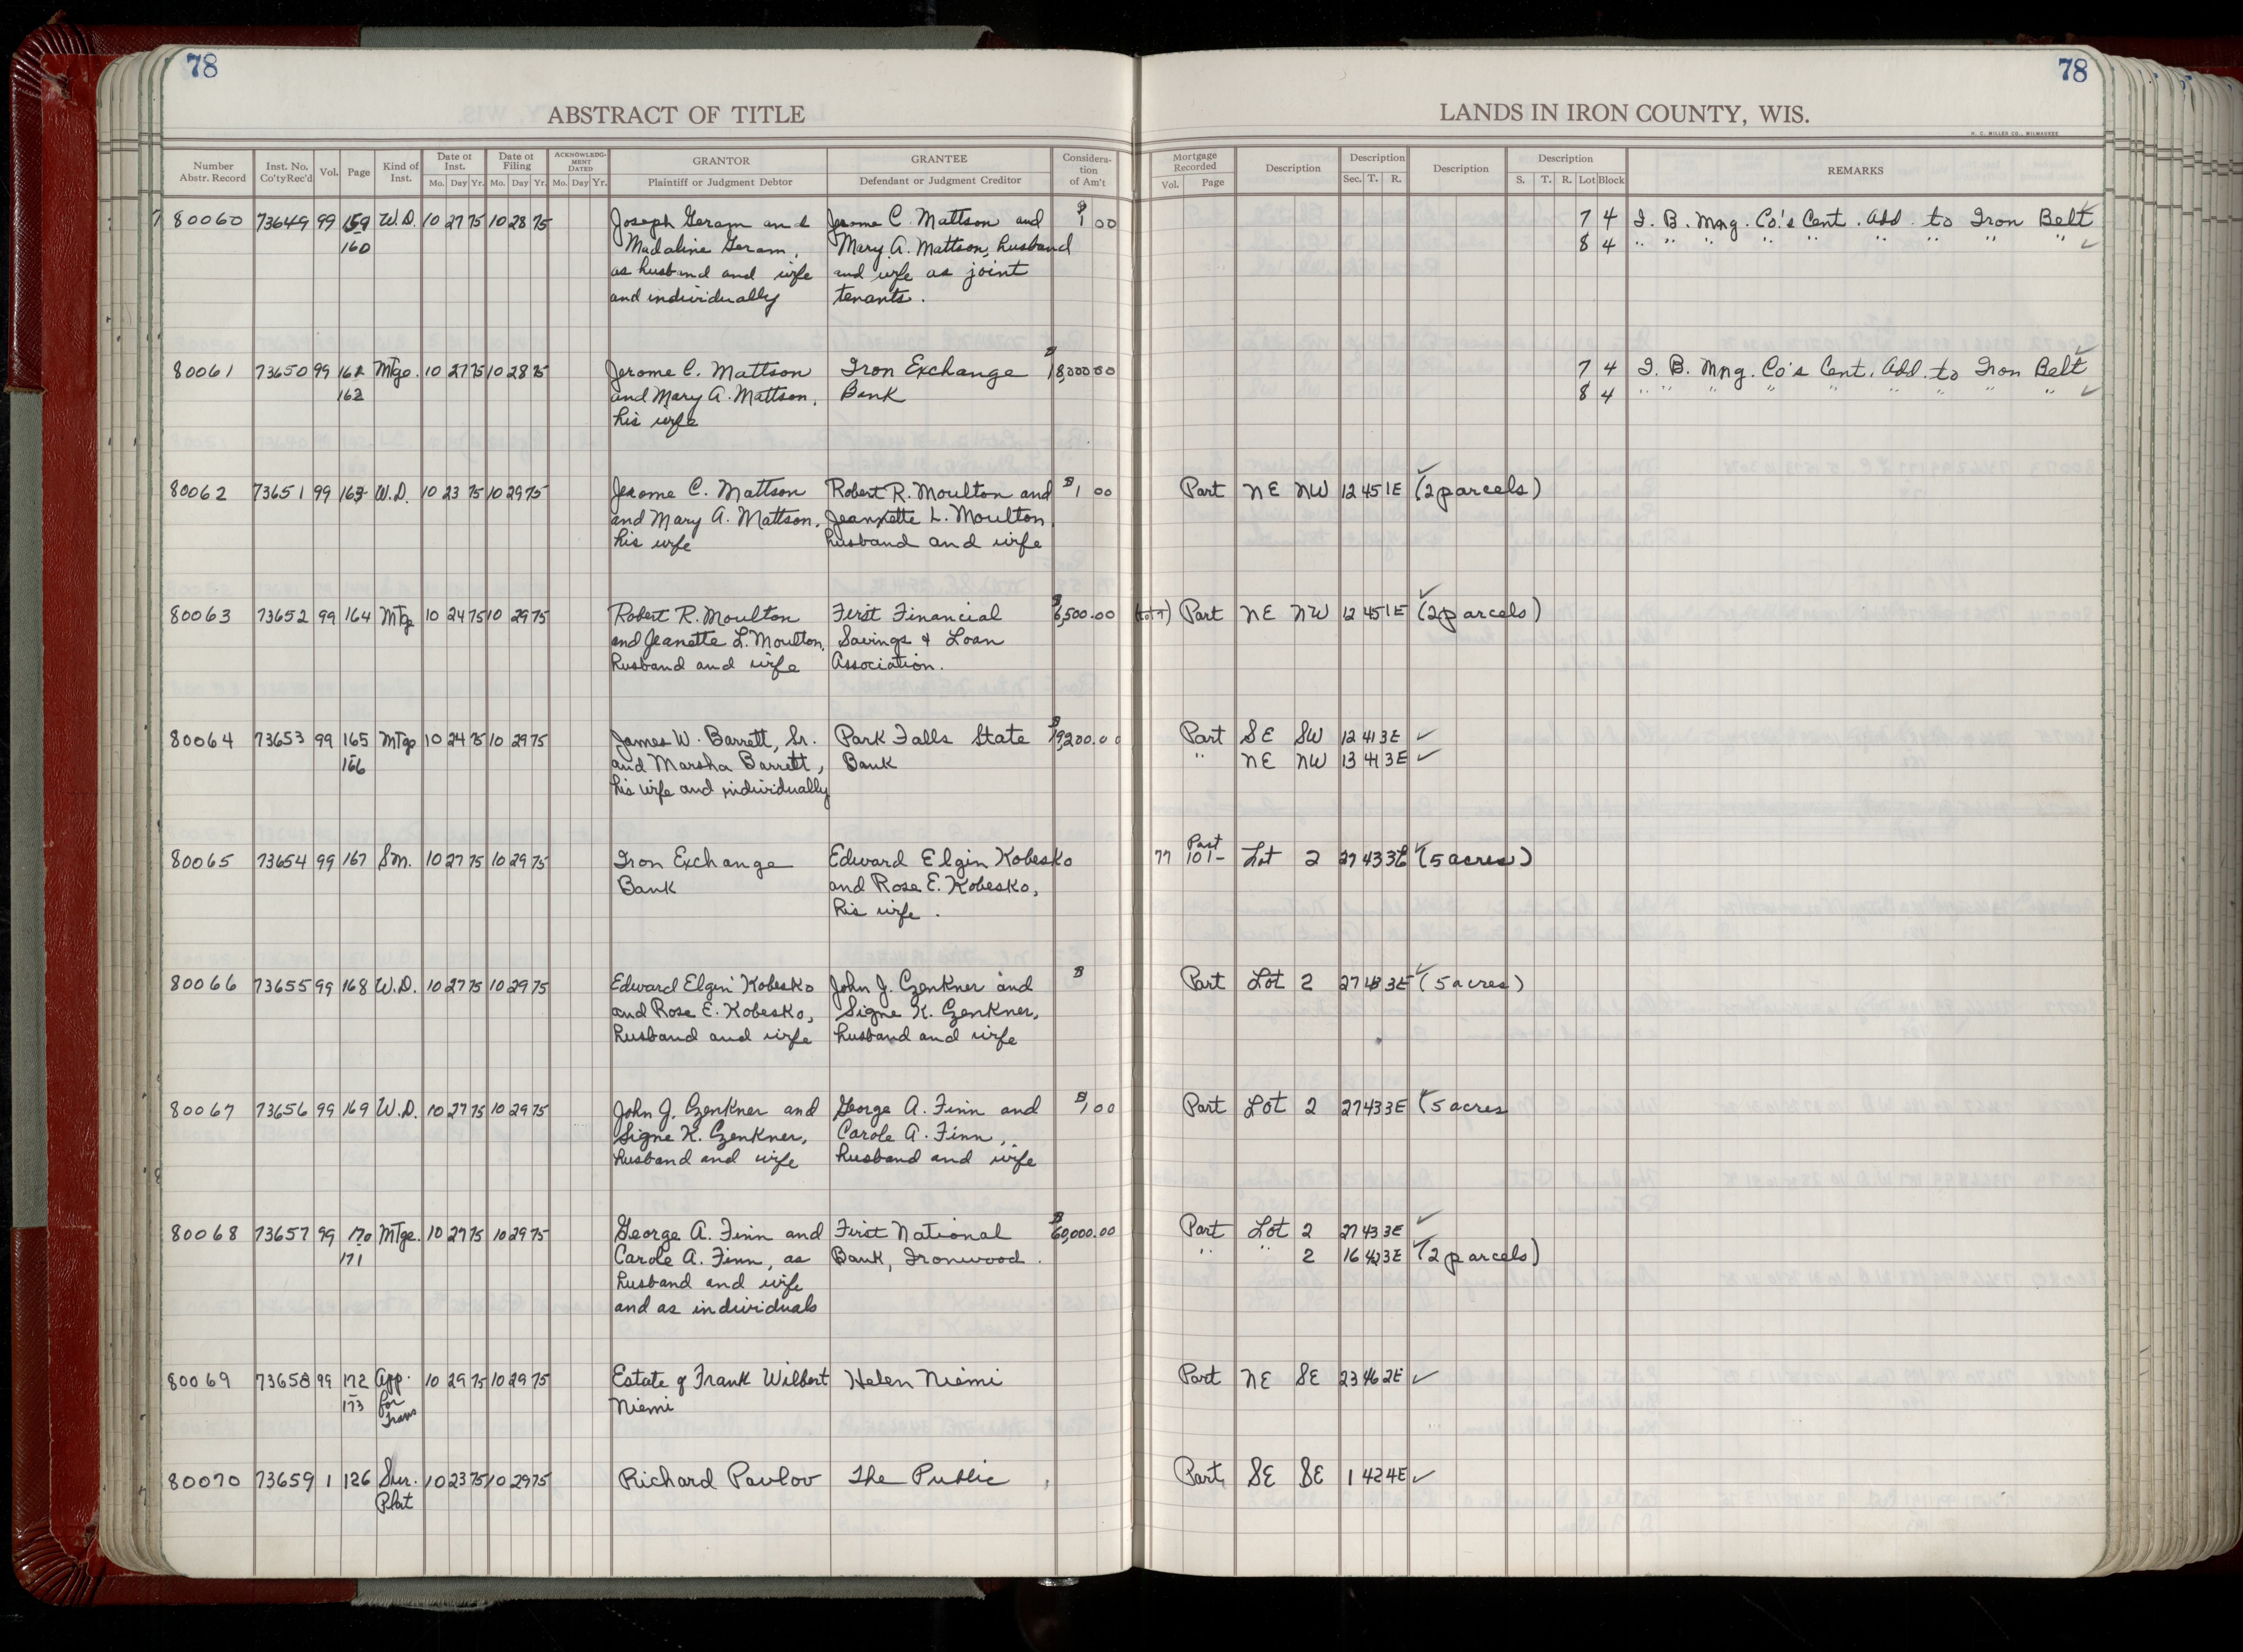 78
78
ABSTRACT OF TITLE
LANDS IN IRON COUNTY, WIS.
H. C. MILLER CO., MILWAUKEE
Number Abstr. Record Inst. No. Co'ty Rec'd Vol. Page Kind of Inst. Date of Inst. Mo. Day Yr. Date of Filing Mo. Day Yr. ACKNOWLEDGMENT DATED Mo. Day Yr. GRANTOR Plaintiff or Judgment Debtor GRANTEE Defendant or Judgment Creditor Consideration of Am't Mortgage Recorded Vol. Page Description Description Sec. T. R. Description Description S. T. R. Lot Block REMARKS
80060 73649 99 159 W.D. 10 27 75 10 28 75 Joseph Geram and Jerome C. Mattson and $1 00 7 4 I. B. Mng. Co's Cent. Add. to Iron Belt
160 Madaline Geram, Mary A. Mattson, husband 8 4 " " " " " " " " "
as husband and wife and wife as joint
and individually tenants.
80061 73650 99 161 Mtge. 10 27 75 10 28 75 Jerome C. Mattson Iron Exchange $18,000 00 7 4 I. B. Mng. Co's Cent. Add. to Iron Belt
162 and Mary A. Mattson, Bank 8 4 " " " " " " " " "
his wife
80062 73651 99 163 W.D. 10 23 75 10 29 75 Jerome C. Mattson Robert R. Moulton and $1 00 Part NE NW 12 45 1E (2 parcels)
and Mary A. Mattson, Jeannette L. Moulton,
his wife husband and wife
80063 73652 99 164 Mtge 10 24 75 10 29 75 Robert R. Moulton First Financial $6,500.00 Part NE NW 12 45 1E (2 parcels)
and Jeanette L. Moulton, Savings & Loan
husband and wife Association.
80064 73653 99 165 Mtge 10 24 75 10 29 75 James W. Barrett, Sr. Park Falls State $19,200.00 Part SE SW 12 41 3E
166 and Marsha Barrett, Bank " NE NW 13 41 3E
his wife and individually
80065 73654 99 167 Sm. 10 27 75 10 29 75 Iron Exchange Edward Elgin Kobesko 77 101- Part Lot 2 27 43 3E (5 acres)
Bank and Rose E. Kobesko,
his wife.
80066 73655 99 168 W.D. 10 27 75 10 29 75 Edward Elgin Kobesko John J. Czenkner and $ Part Lot 2 27 43 3E (5 acres)
and Rose E. Kobesko, Signe K. Czenkner,
husband and wife husband and wife
80067 73656 99 169 W.D. 10 27 75 10 29 75 John J. Czenkner and George A. Finn and $1,00 Part Lot 2 27 43 3E (5 acres
Signe K. Czenkner, Carole A. Finn,
husband and wife husband and wife
80068 73657 99 170 Mtge. 10 27 75 10 29 75 George A. Finn and First National $60,000.00 Part Lot 2 27 43 3E
171 Carole A. Finn, as Bank, Ironwood. " " 2 16 42 3E (2 parcels)
husband and wife
and as individuals
80069 73658 99 172 App. 10 29 75 10 29 75 Estate of Frank Wilbert Helen Niemi Part NE SE 23 46 2E
173 for Niemi
Trans
80070 73659 1 126 Sur. 10 23 75 10 29 75 Richard Pavlov The Public Part SE SE 1 42 4E
Plat